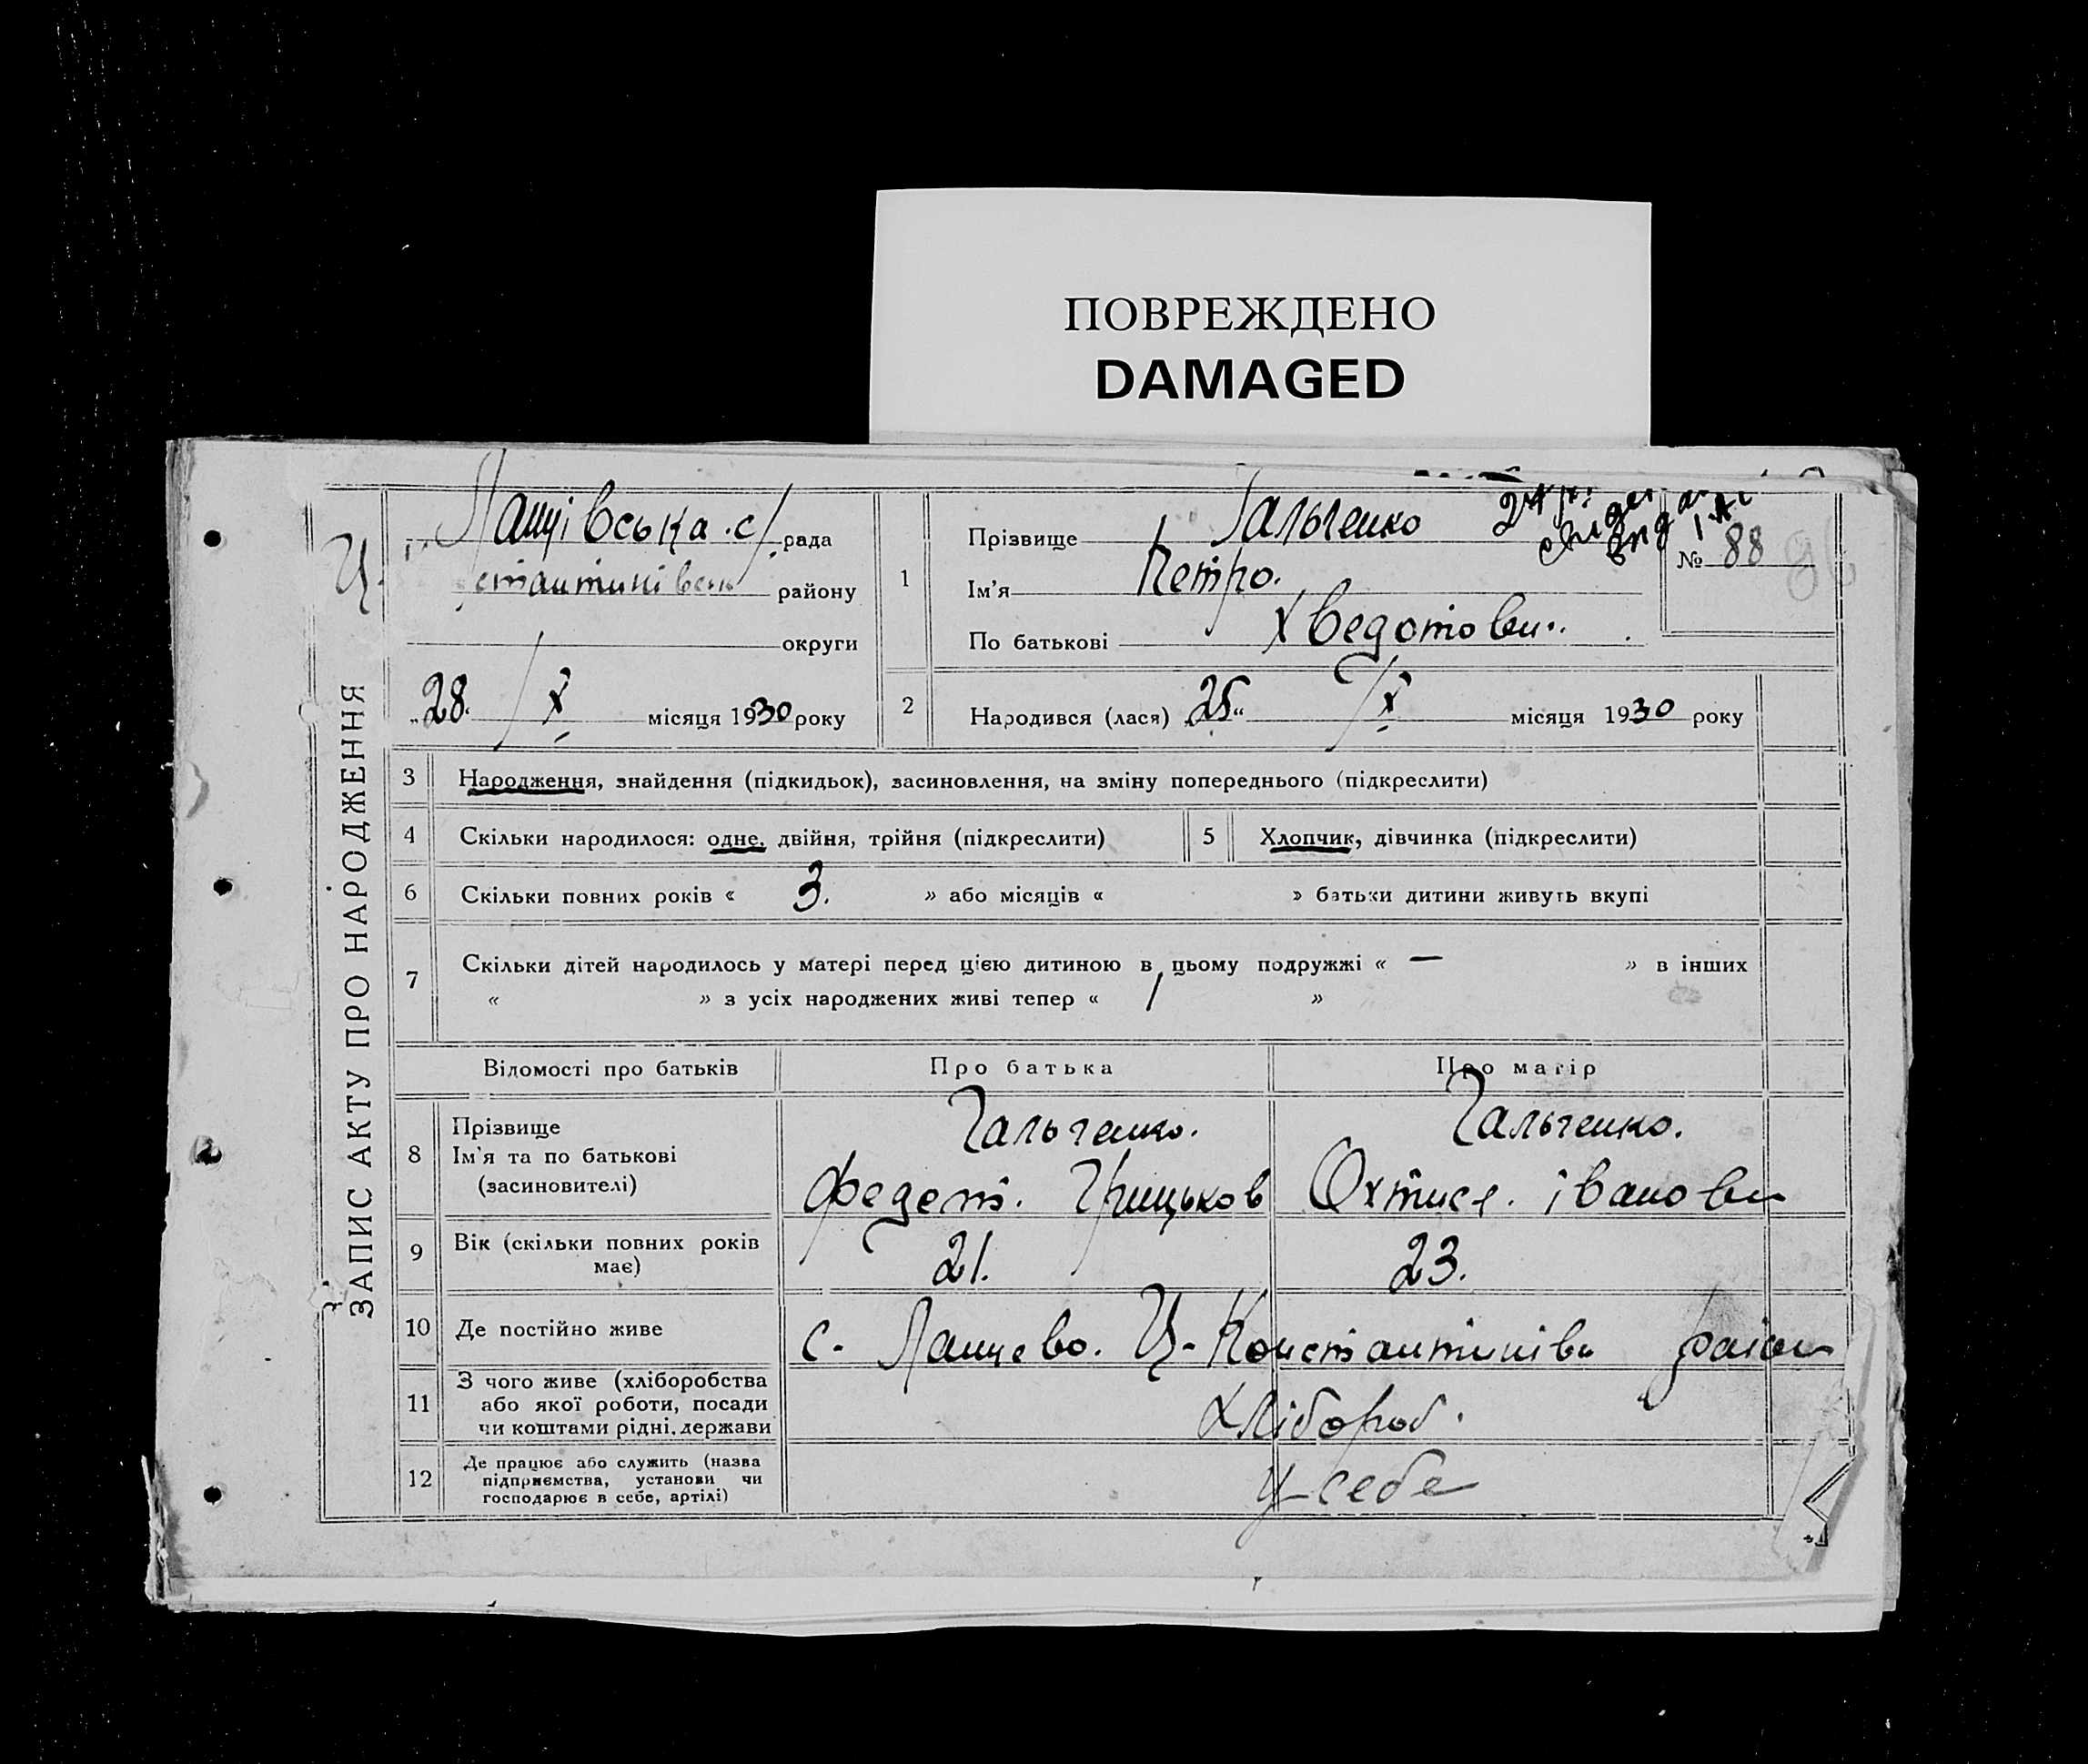 ПОВРЕЖДЕНО
DAMAGED
ЗАПИС АКТУ ПРО НАРОДЖЕННЯ
Ланцівська с/рада
району
округи
„28 / X місяця 1930 року
1
Прізвище Гальченко
Ім'я Петро.
По батькові Хведотови
№ 88
2
Народився (лася) 25“ / X місяця 1930 року
3 Народження, знайдення (підкидьок), засиновлення, на зміну попереднього (підкреслити)
4 Скільки народилося: одне, двійня, трійня (підкреслити)
5 Хлопчик, дівчинка (підкреслити)
6 Скільки повних років « 3. » або місяців « » батьки дитини живуть вкупі
7 Скільки дітей народилось у матері перед цією дитиною в цьому подружжі « — » в інших
« » з усіх народжених живі тепер « 1 »
Відомості про батьків Про батька Про матір
8 Прізвище Гальченко. Гальченко.
Ім'я та по батькові
(засиновителі) Федот. Грицьков івановн
9 Вік (скільки повних років
має) 21. 23.
10 Де постійно живе с. Ланцево. Ц-Константинівн район
11 З чого живе (хліборобства
або якої роботи, посади
чи коштами рідні, держави
хлібороб.
12 Де працює або служить (назва
підприємства, установи чи
господарює в себе, артілі)
у-себе